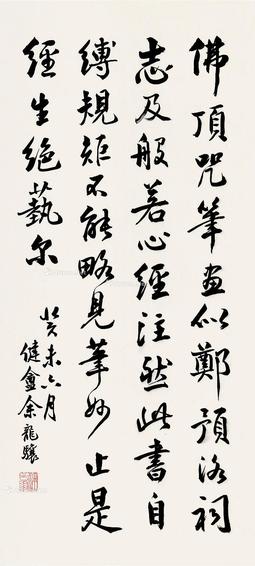 佛頂咒筆畫似鄭預洛祠
志及般若心經注然此書自
縛規矩不能略見筆妙止是
經生絕藝尔
癸未六月
健盦余龍驤